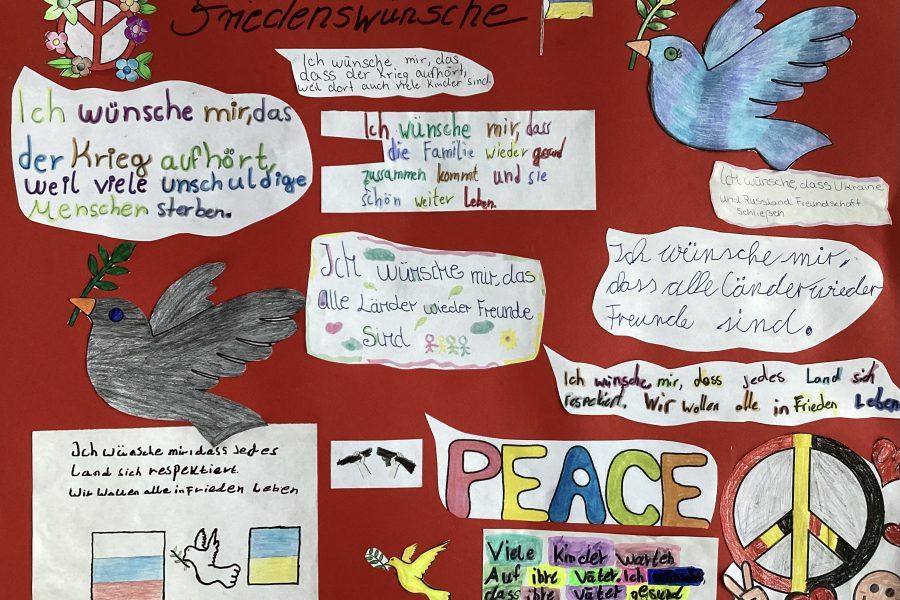 Friedenswünsche
Ich wünsche mir, das
dass der Krieg aufhört,
weil dort auch viele Kinder sind
Ich wünsche mir, das
der Krieg aufhört,
weil viele unschuldige
Menschen sterben.
Ich wünsche mir, dass
die Familie wieder gesund
zusammen kommt und sie
schön weiter Leben.
Ich wünsche, dass Ukraine
und Russland Freundschaft
schließen
Ich wünsche mir, das
alle Länder wieder Freunde
Sind
Ich wünsche mir,
dass alle Länder wieder
Freunde sind.
Ich wünsche mir, dass jedes Land sich
respektiert. Wir wollen alle in Frieden Leben
Ich wünsche mir, dass jedes
Land sich respektiert.
Wir Wollen alle in Frieden Leben
PEACE
Viele Kinder warten
Auf ihre Väter. Ich
dass ihre Väter gesund